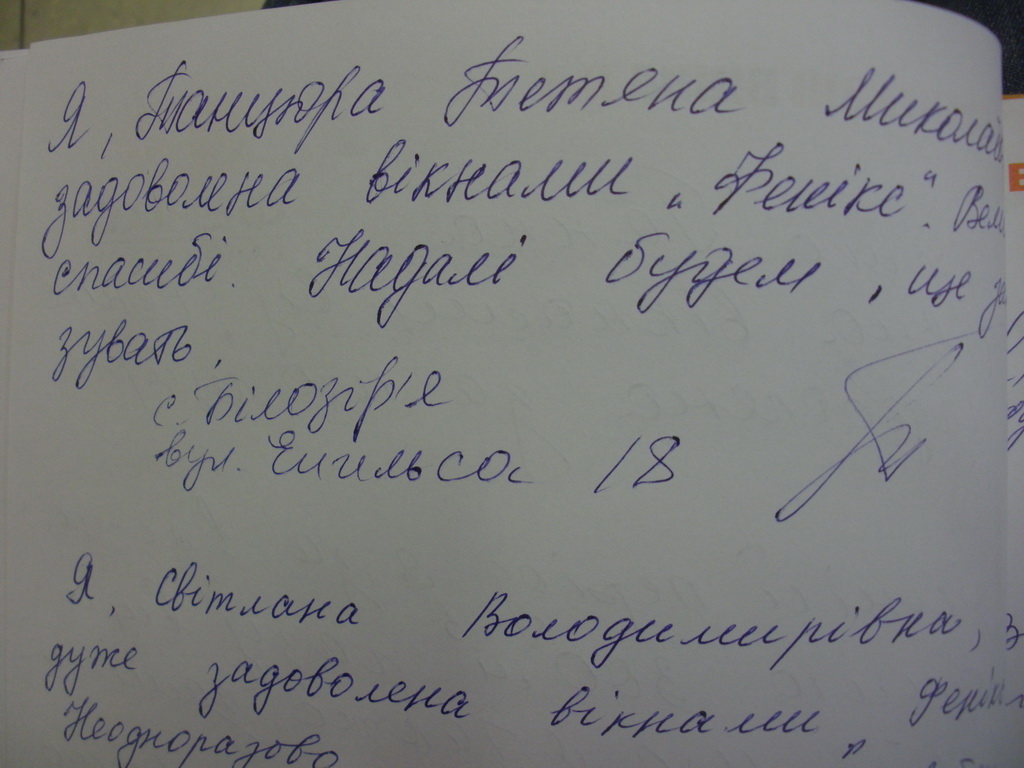 Я, Танцюра Тетяна Миколаї
задоволена вікнами „Фенікс". Вели
спасибі. Надалі будем, ще за
зувать,
с. Білозір'я
вул. Енгельса 18
Я, Світлана Володимирівна, з
дуже задоволена вікнами Фенік
Неодноразово